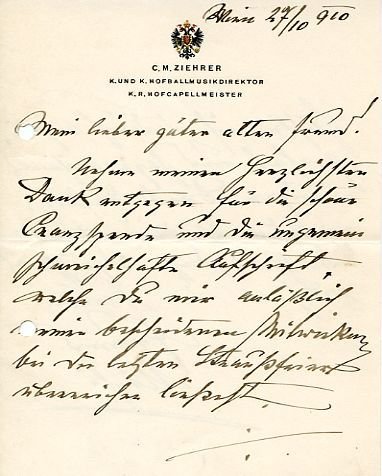 Wien 29/10 910
C. M. ZIEHRER
K. UND K. HOFBALLMUSIKDIREKTOR
K. R. HOFCAPELLMEISTER
Mein lieber guter alter Freund!
Nehme meinen herzlichsten
Dank entgegen für die schöne
Kranzspende und die ungemein
schmeichelhafte Aufschrift,
welche Du mir anläßlich
meiner bescheidenen Mitwirkung
bei der letzten Straußfeier
überreichen ließest.